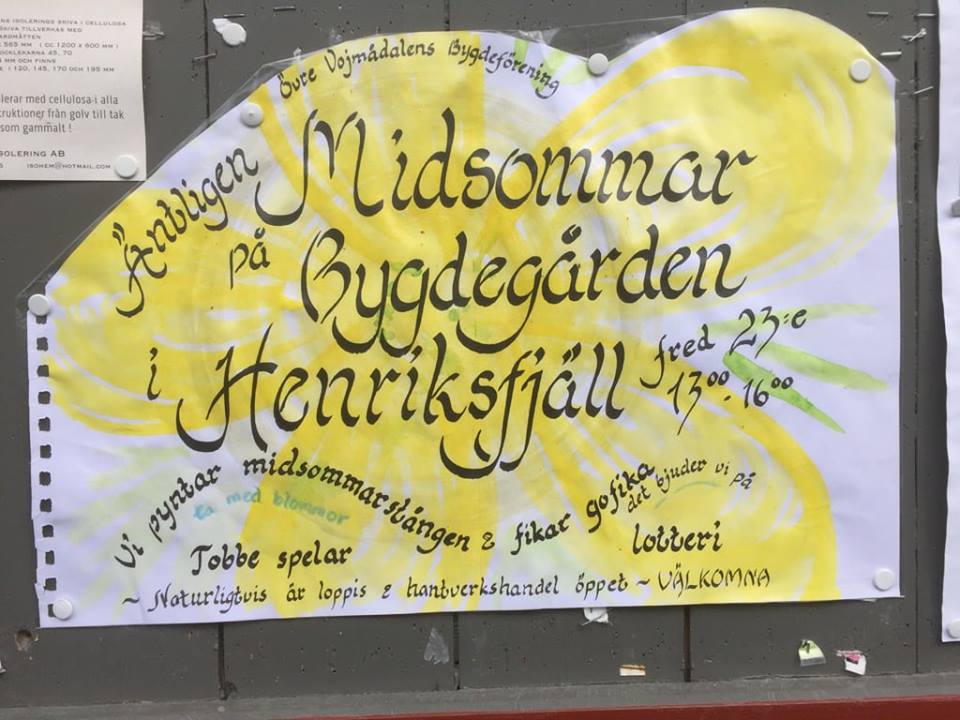 NS ISOLERINGS SKIVA I CELLULOSA
SKIVA TILLVERKAS MED
565 MM ( CC 1200 X 600 MM )
OCKLEKARNA 45, 70
MM OCH FINNS
I 120, 145, 170 OCH 195 MM
lerar med cellulosa-i alla
truktioner från golv till tak
som gammalt !
SOLERING AB
ISOHEM@HOTMAIL.COM
Övre Vojmådalens Bygdeförening
Äntligen Midsommar
på Bygdegården
i Henriksfjäll fred 23:e
13⁰⁰-16⁰⁰
Vi pyntar midsommarstången & fikar gofika
ta med blommor
det bjuder vi på
Tobbe spelar
lotteri
~ Naturligtvis är loppis & hantverkshandel öppet ~ VÄLKOMNA